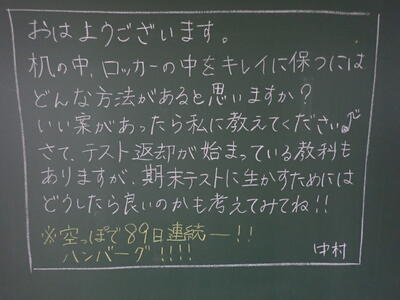 おはようございます。
机の中、ロッカーの中をキレイに保つには
どんな方法があると思いますか?
いい案があったら私に教えてください♪
さて、テスト返却が始まっている教科も
ありますが、期末テストに生かすためには
どうしたら良いのかも考えてみてね!!
※空っぽで89日連続ー!!
ハンバーグ!!!!
中村